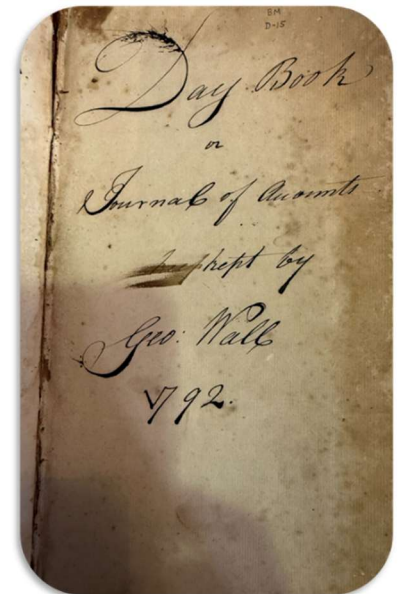 BM
D-15
Day Book
or
Journal of Acounts
kept by
Geo: Wall
1792.